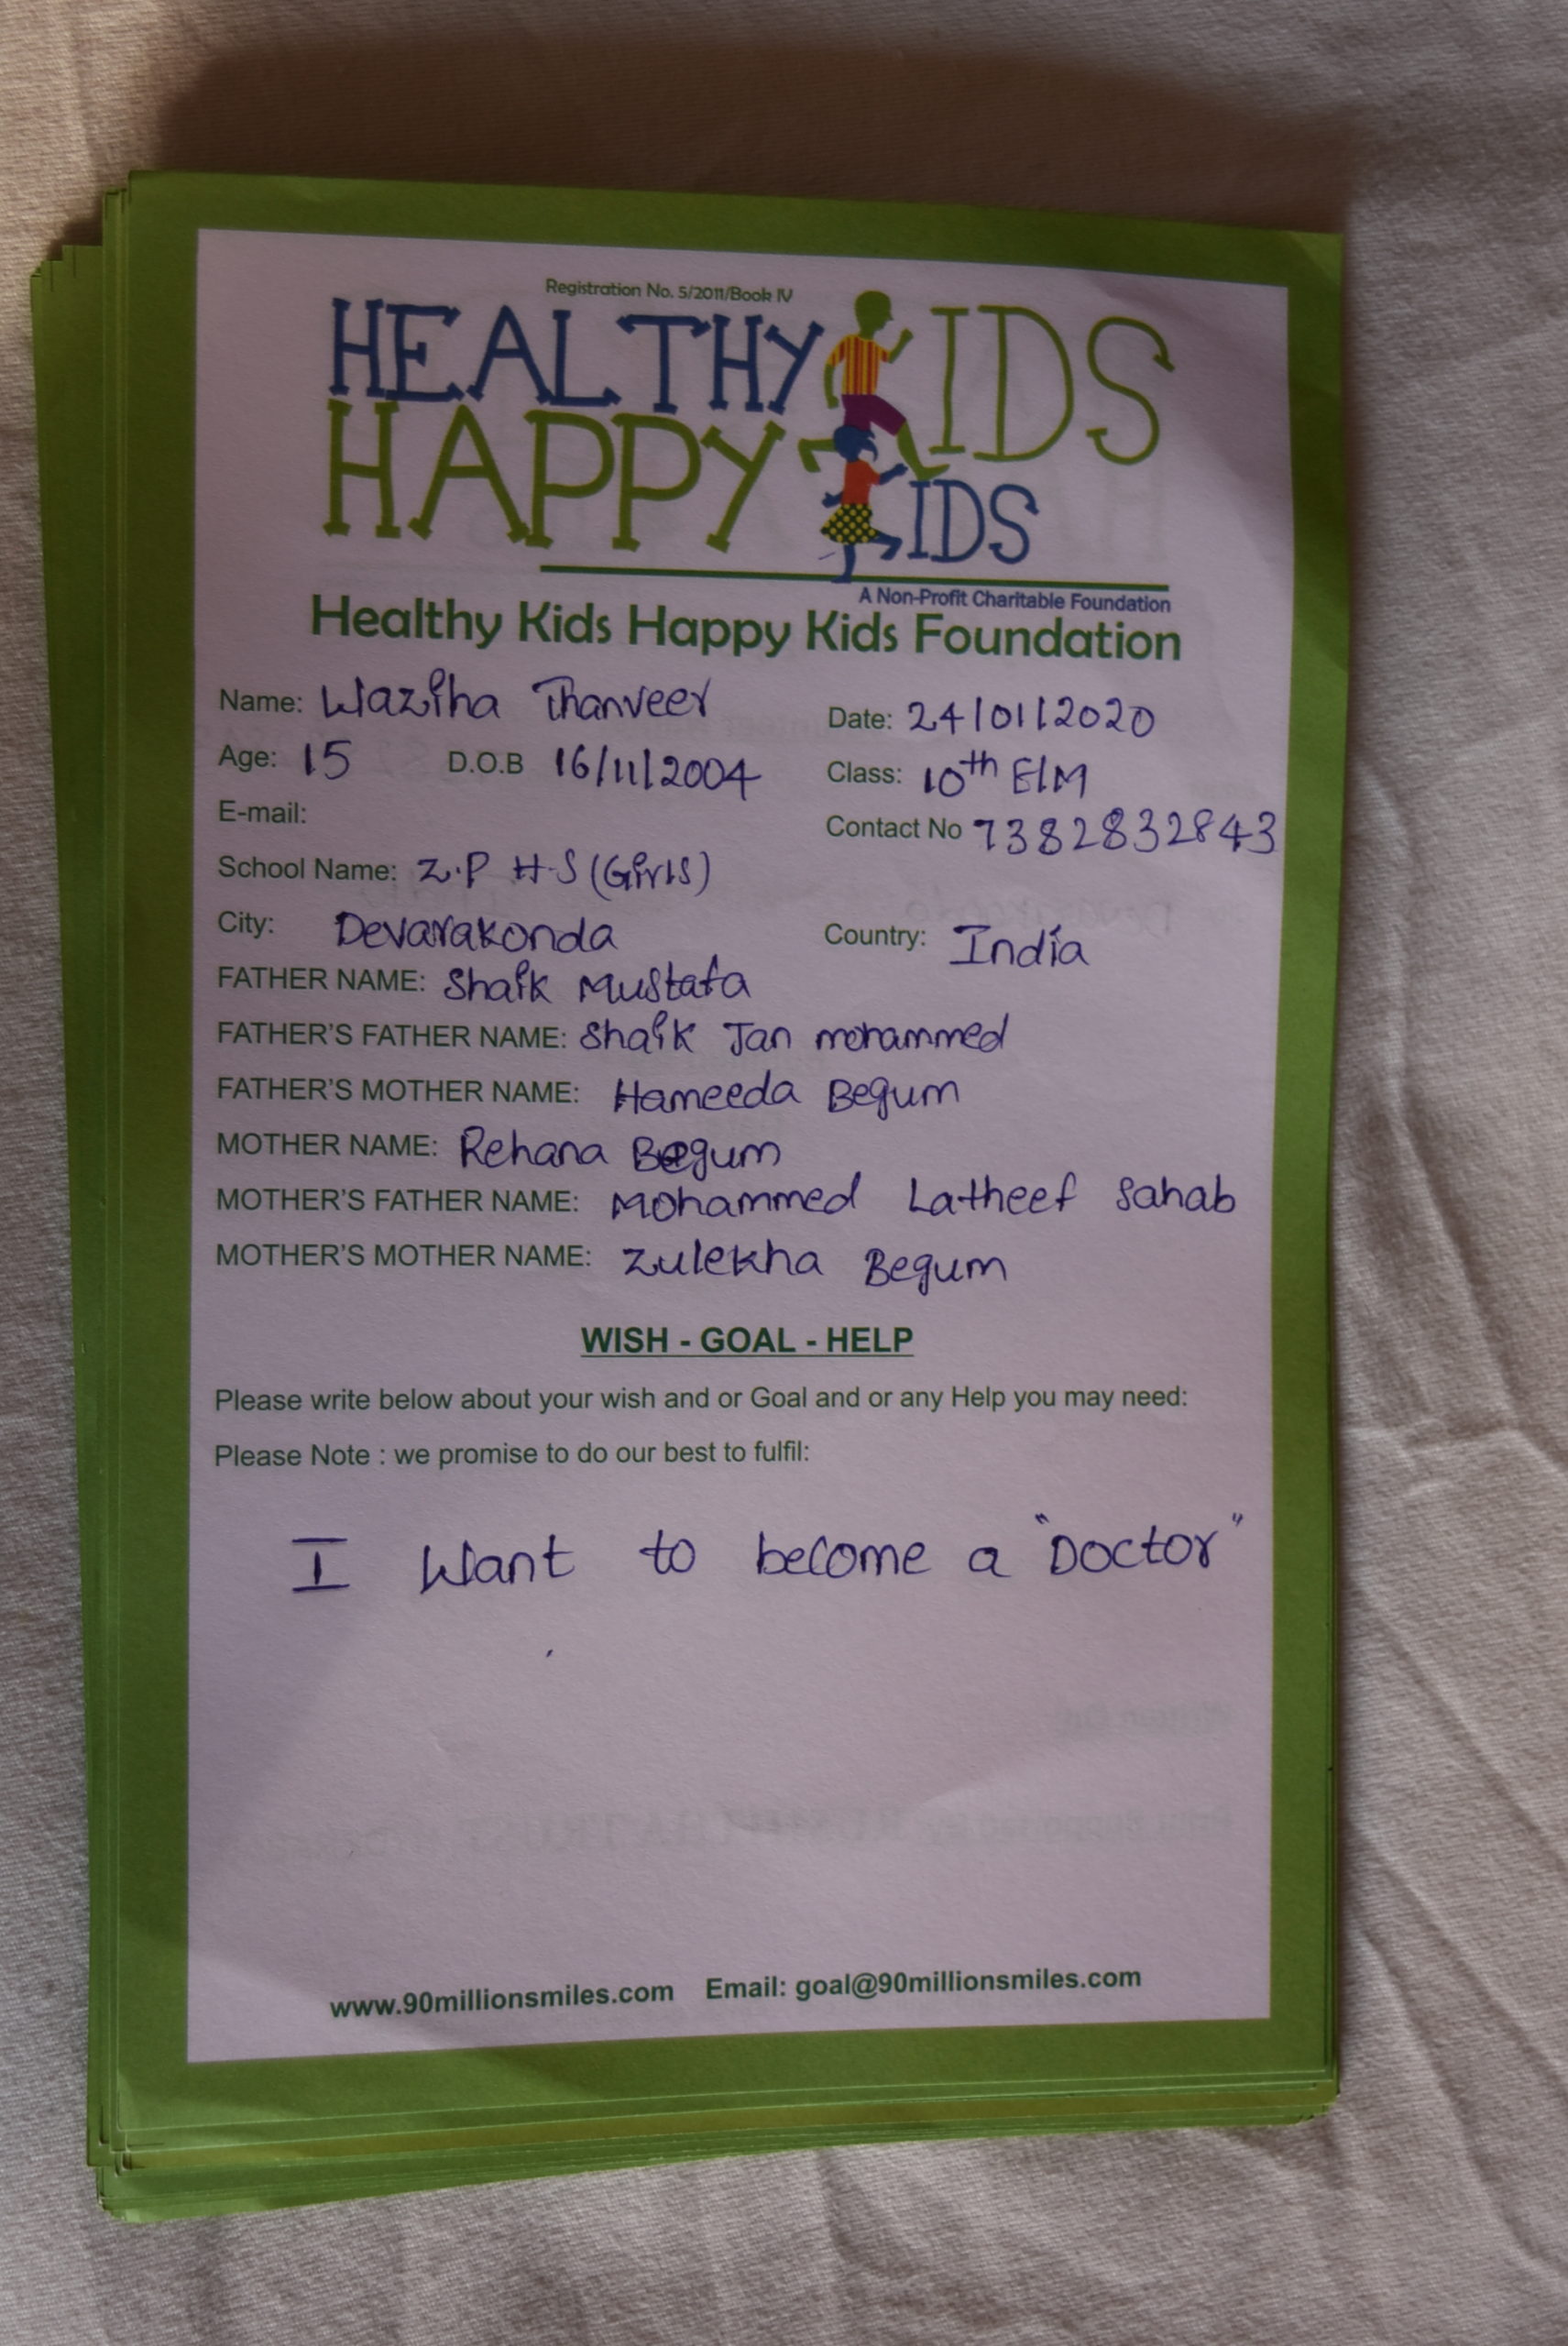 Registration No. 5/2011/Book IV
HEALTHY KIDS
HAPPY KIDS
A Non-Profit Charitable Foundation
Healthy Kids Happy Kids Foundation
Name: Waziha Thanveer Date: 24/01/2020
Age: 15 D.O.B 16/11/2004 Class: 10th E/M
E-mail: Contact No 7382832843
School Name: Z.P H.S (Girls)
City: Devarakonda Country: India
FATHER NAME: Shaik Mustafa
FATHER'S FATHER NAME: Shaik Jan mohammed
FATHER'S MOTHER NAME: Hameeda Begum
MOTHER NAME: Rehana Begum
MOTHER'S FATHER NAME: Mohammed Latheef Sahab
MOTHER'S MOTHER NAME: Zulekha Begum
WISH - GOAL - HELP
Please write below about your wish and or Goal and or any Help you may need:
Please Note : we promise to do our best to fulfil:
I Want to become a "Doctor"
www.90millionsmiles.com Email: goal@90millionsmiles.com